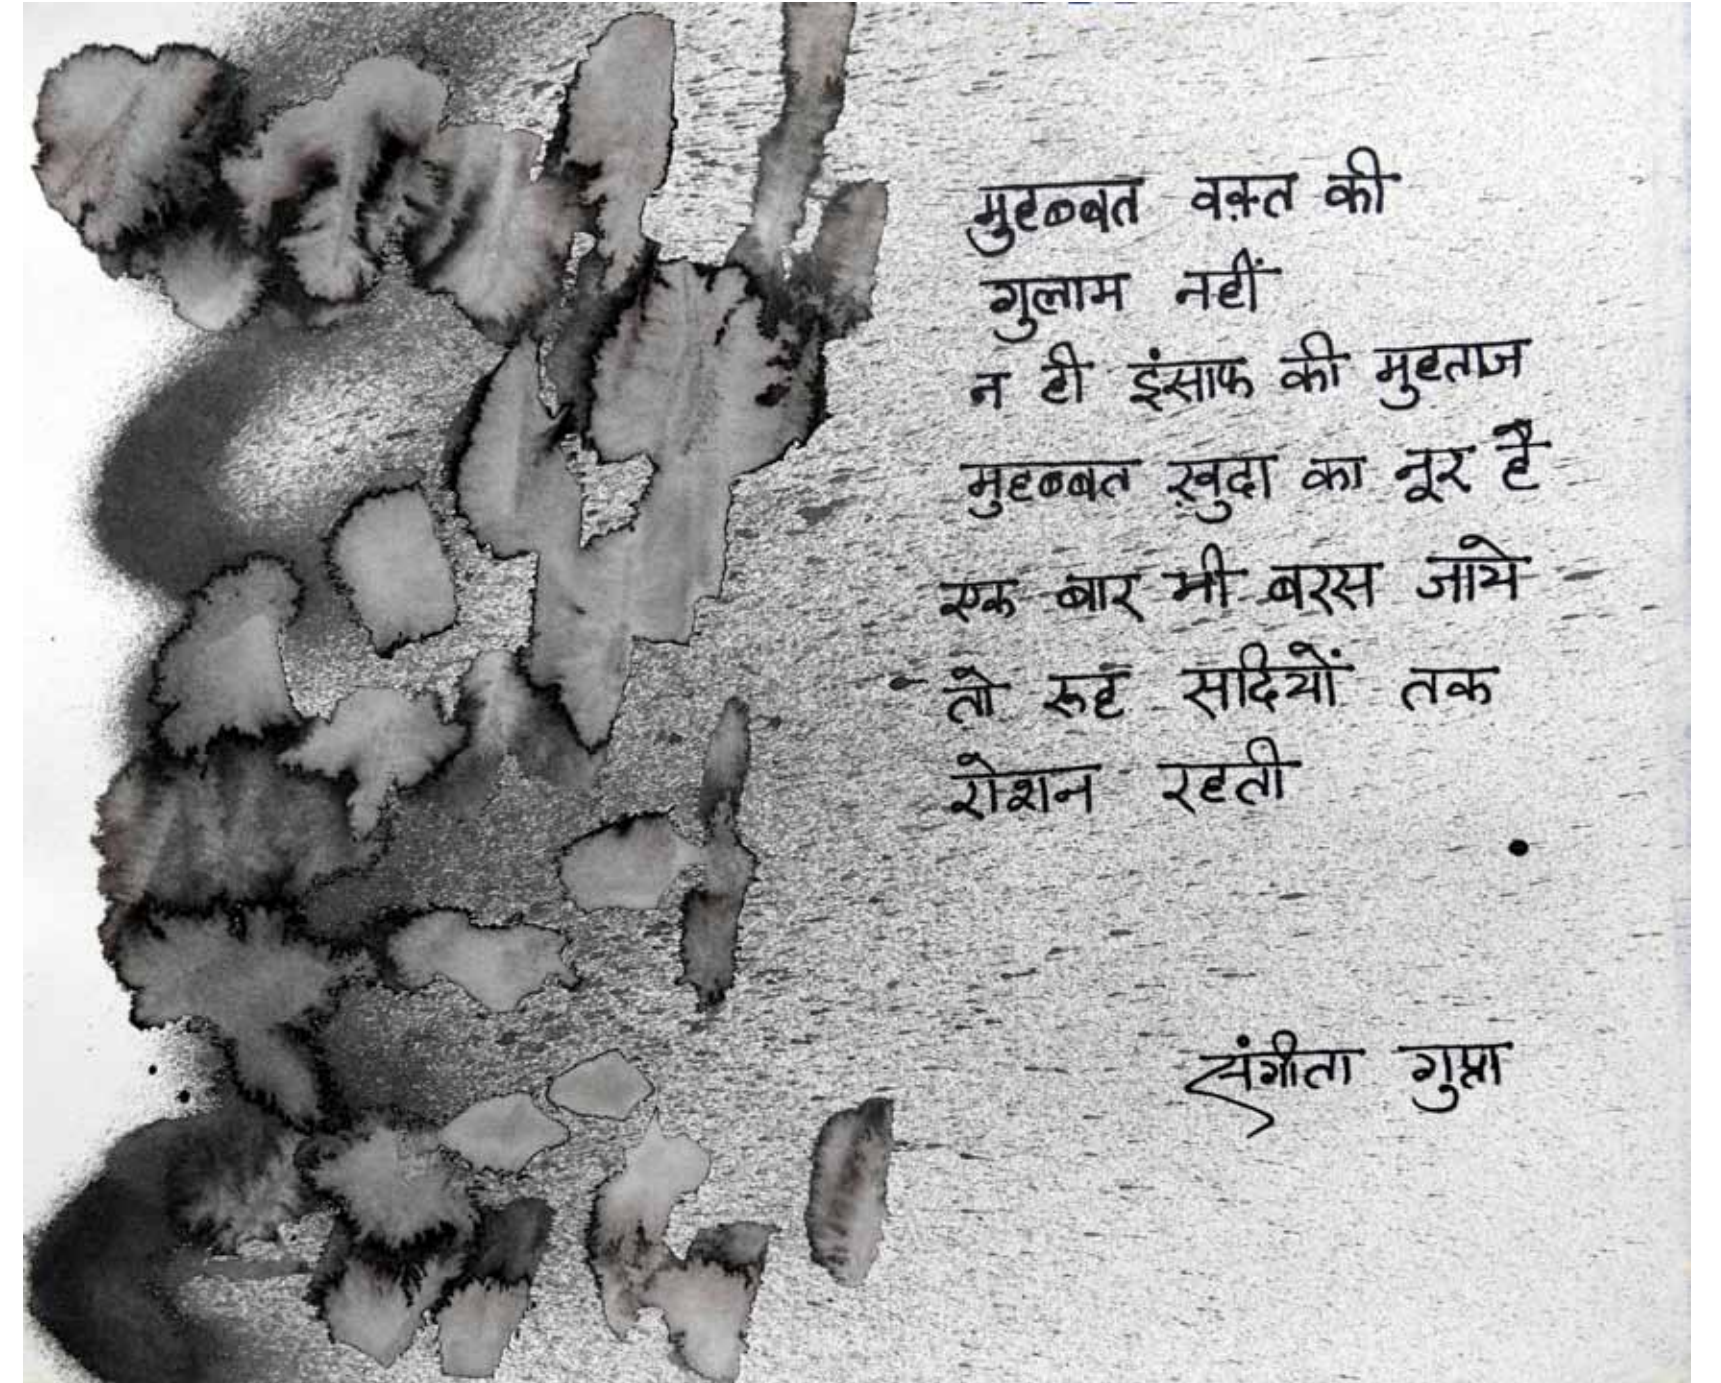 मुहब्बत वक़्त की
गुलाम नहीं
न ही इंसाफ की मुहताज
मुहब्बत ख़ुदा का नूर है
एक बार भी बरस जाये
तो रूह सदियों तक
रोशन रहती
संगीता गुप्ता